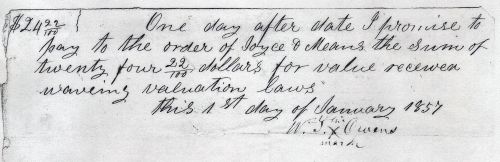 $24 22/100 } One day after date I promise to
pay to the order of Joyce & Means the sum of
twenty four 22/100 dollars for value received
waveing valuation laws
this 1st day of January 1857
his
W. S. X Owens
mark